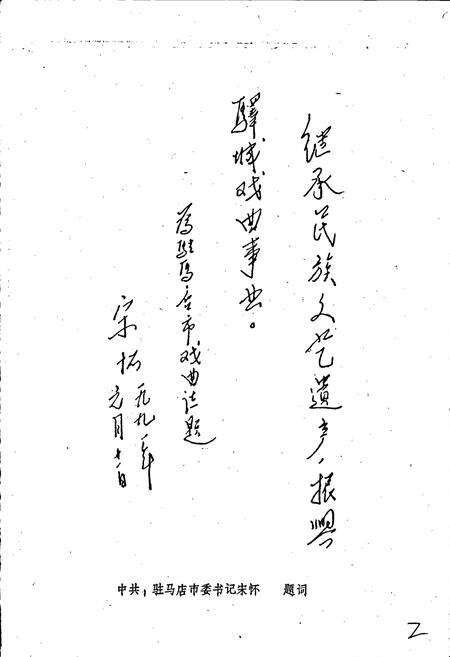 继承民族文艺遗产,振兴
驿城戏曲事业。
为驻马店市戏曲志题
宋怀 一九九一年
元月十八日
中共,驻马店市委书记宋怀 题词
2